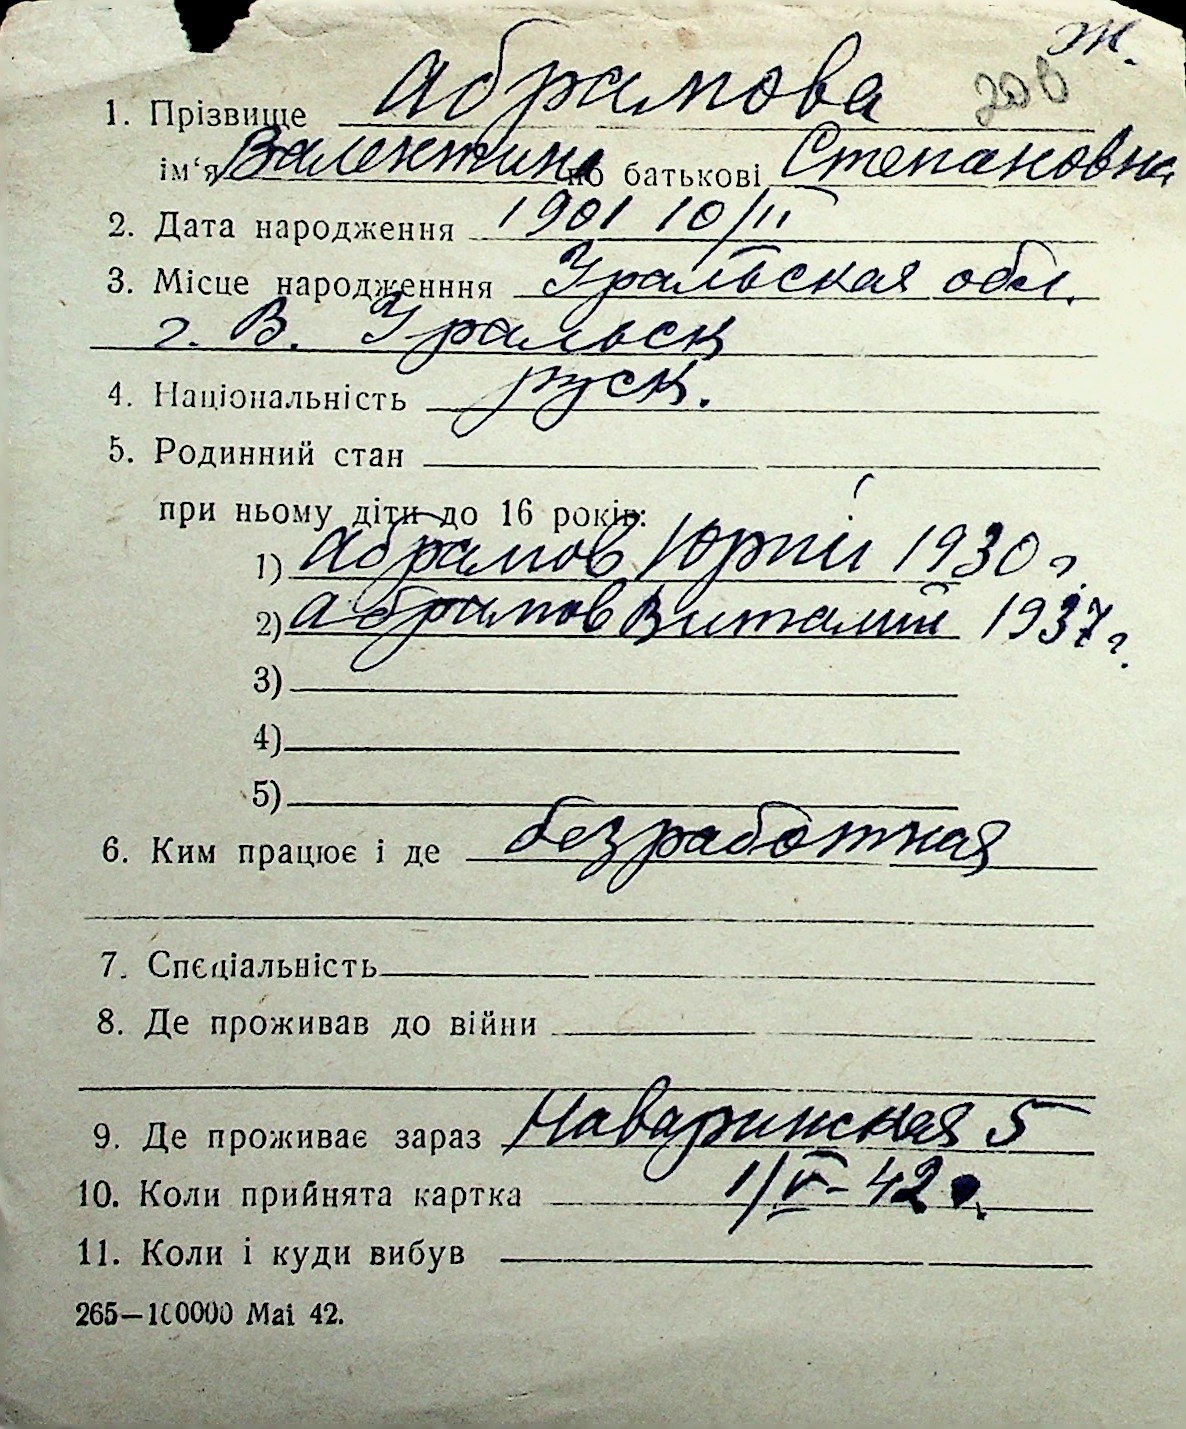 ж.
1. Прізвище Абрамова
ім‘я Валентина по батькові Степановна
2. Дата народження 1901 10/II
3. Місце народженння Уральская обл.
г. В. Уральск
4. Національність руск.
5. Родинний стан
при ньому діти до 16 років:
1) Абрамов Юрий 1930 г.
2) Абрамов Виталий 1937 г.
3)
4)
5)
6. Ким працює і де безработная
7. Спєціальність
8. Де проживав до війни
9. Де проживає зараз Наваринская 5
10. Коли прийнята картка 1/V-42
11. Коли і куди вибув
265—100000 Mai 42.